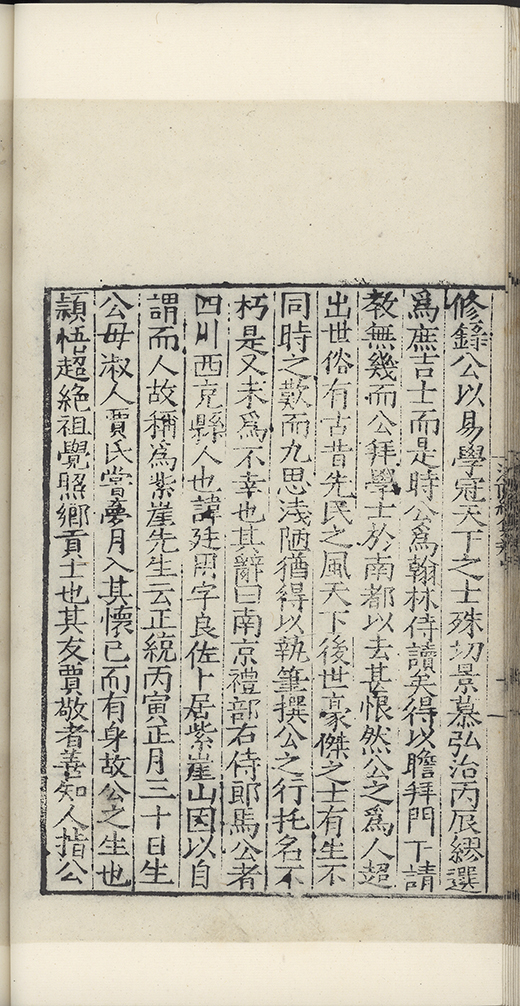 修錄公以易學冠天下之士殊切景慕弘治丙辰繆選
爲庶吉士而是時公爲翰林侍讀矣得以瞻拜門下請
教無幾而公拜學士於南都以去甚恨然公之爲人超
出世俗有古昔先民之風天下後世豪傑之士有生不
同時之歎而九思淺陋猶得以執筆撰公之行托名不
朽是又未爲不幸也其辭曰南京禮部右侍郎馬公者
四川西充縣人也諱廷用字良佐卜居紫崖山因以自
謂而人故稱爲紫崖先生云正統丙寅正月二十日生
公母淑人賈氏嘗夢月入其懷已而有身故公之生也
頴悟超絶祖覺照鄉貢士也其友賈敬者善知人指公